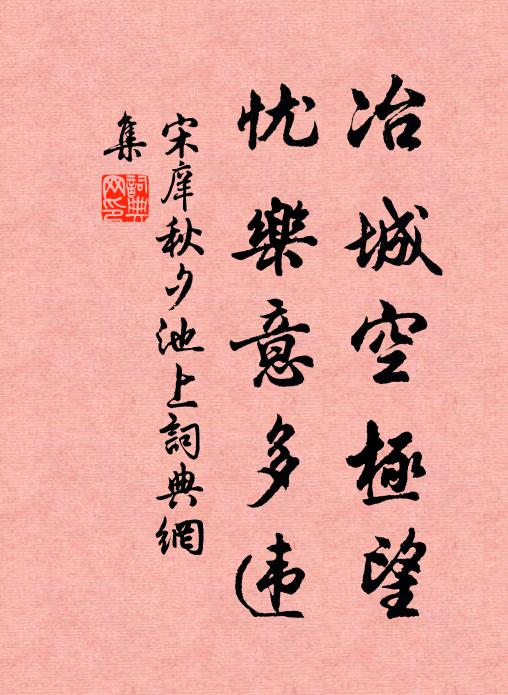 冶城空極望
忧樂意多违
宋庠秋夕池上詞典網
集
詞典網印